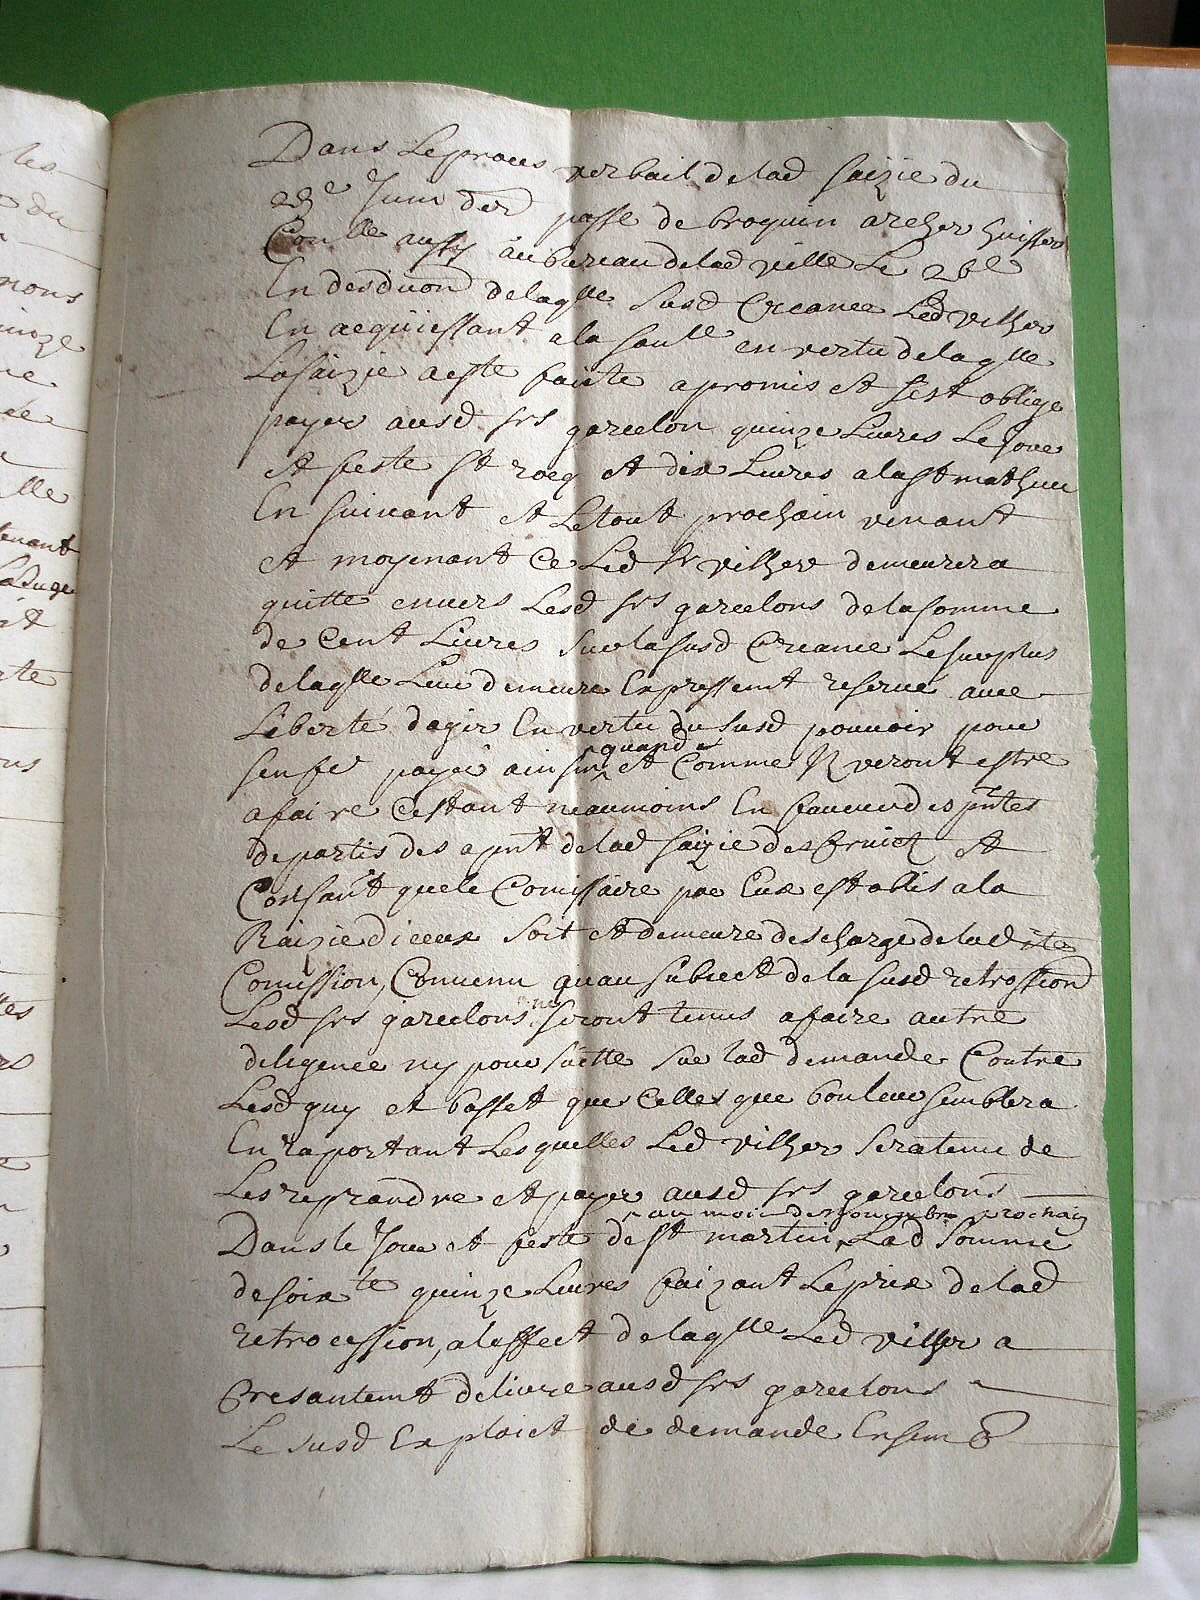 Dans Le proces verbail de lad saizie du
28e Juin der passé de broquin archer huissier
Conlle aussy au bureau de lad ville Le 28e
En desduon de laqlle susd Creance Led vilher
En acquiessant a la saulle en vertu de laqlle
La saizie a este fairte a promis et sest oblige
payer ausd srs garcelon quinze Livres Le Jour
et feste st rocq et dix Livres a la st mathieu
En suivant et Le tout prochain venant
et moyenant Ce Led sr vilher demeurera
quitte envers Lesd srs garcelons de la somme
de Cent Livres sur la susd Creance Le surplus
de laqlle Leur demeure Expressemt reservé avec
Liberté dagir En vertu du susd pouvoir pour
sen fe payer ainsin quand et Comme Ils veront estre
a faire Cestant neaumoins En faveur des pntes
departis des apnt de lad saizie des fruictz et
Consant que le Comissaire par Eux establis a la
Saizie diceux soit et demeure descharge de ladite
Comission, Convenu quau subiect de la susd retrossion
Lesd srs garcelons ne seront tenus a faire autre
diligence ny poursuitte sur lad demande Contre
Lesd guy et basset que Celles que bon leur semblera
En raportant Lesquelles Led vilher sera tenu de
Les reprandre et payer ausd srs garcelons
au mois de novembre prochain
Dans le Jour et feste de st martin Lad Somme
de soixte quinze Livres faizant Le prix de lad
retrocession, a leffect de laqlle Led vilher a
Presantemt delivre ausd srs garcelons
Le susd Exploict de demande Ensem